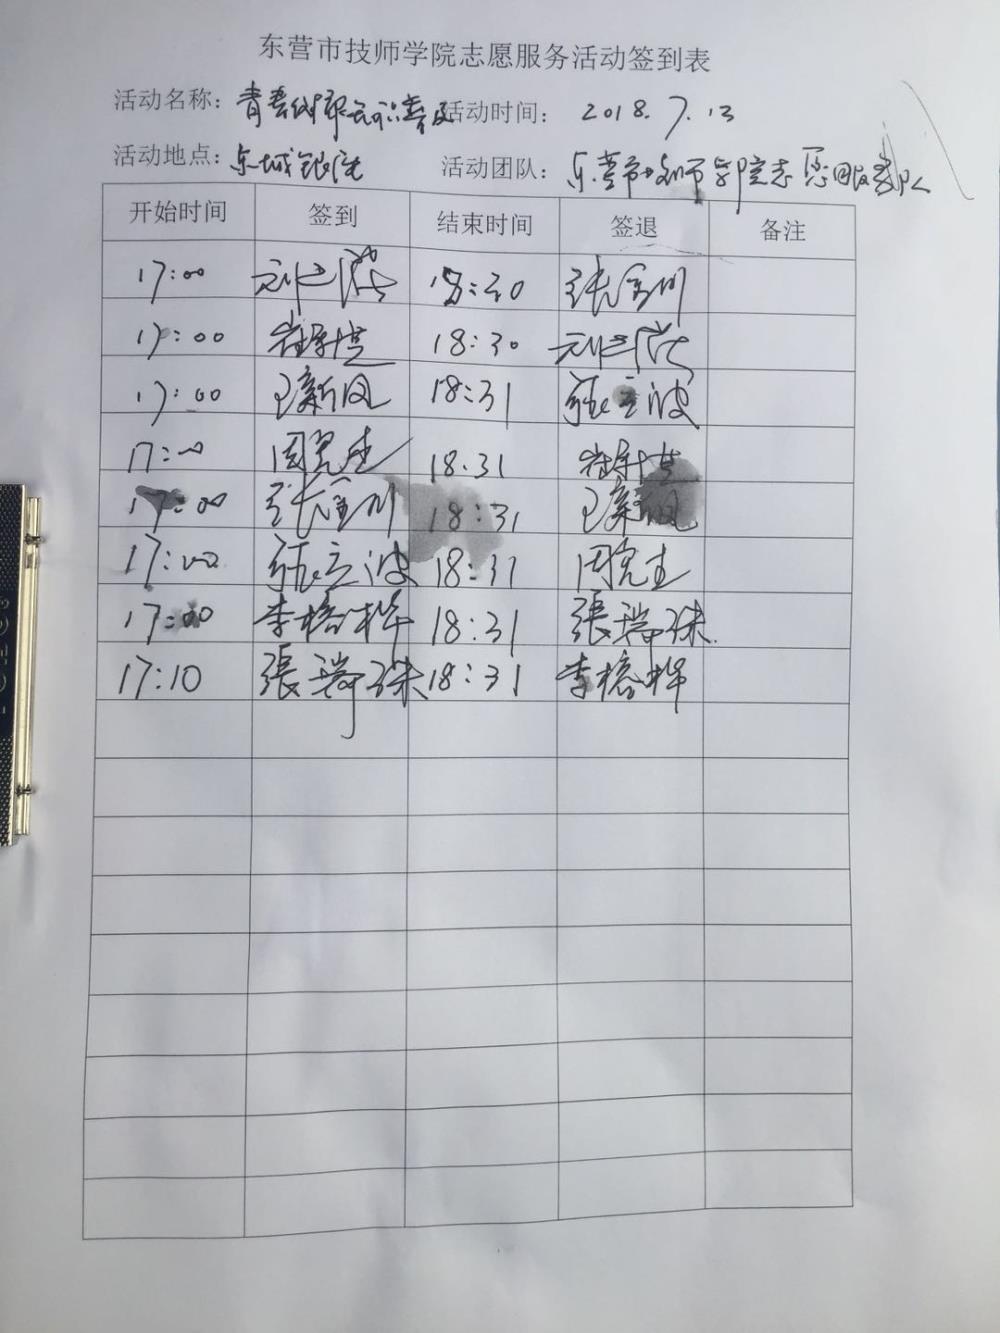 东营市技师学院志愿服务活动签到表
活动名称: 活动时间: 2018.7.13
活动地点: 东城银座 活动团队: 东营市技师学院志愿服务队
开始时间 签到 结束时间 签退 备注
17:00 18:30 张金川
17:00 18:30
17:00 王新凤 18:31 张立波
17:00 周完生 18.31
17:00 张金川 18:31 王新凤
17:00 张立波 18:31 周完生
17:00 李榕桦 18:31 張瑞珠
17:10 張瑞珠 18:31 李榕桦